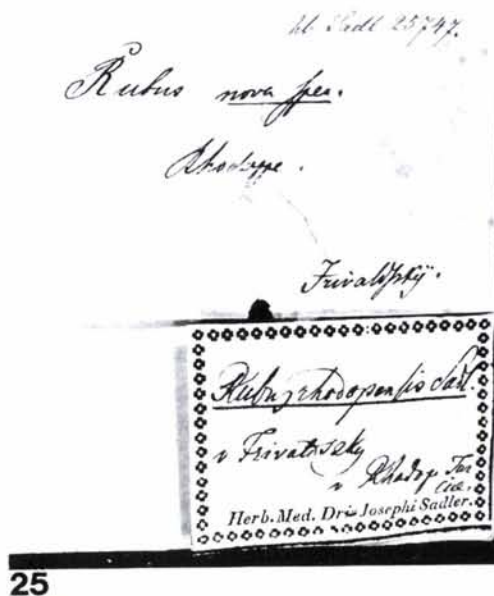 hb Sadl 25747.
Rubus nova spec.
Rhodope.
Frivaldsky.
Rubus rhodopensis Sadl.
Frivalszky
Rhodop Tur
cice.
Herb. Med. Dris Josephi Sadler.
25